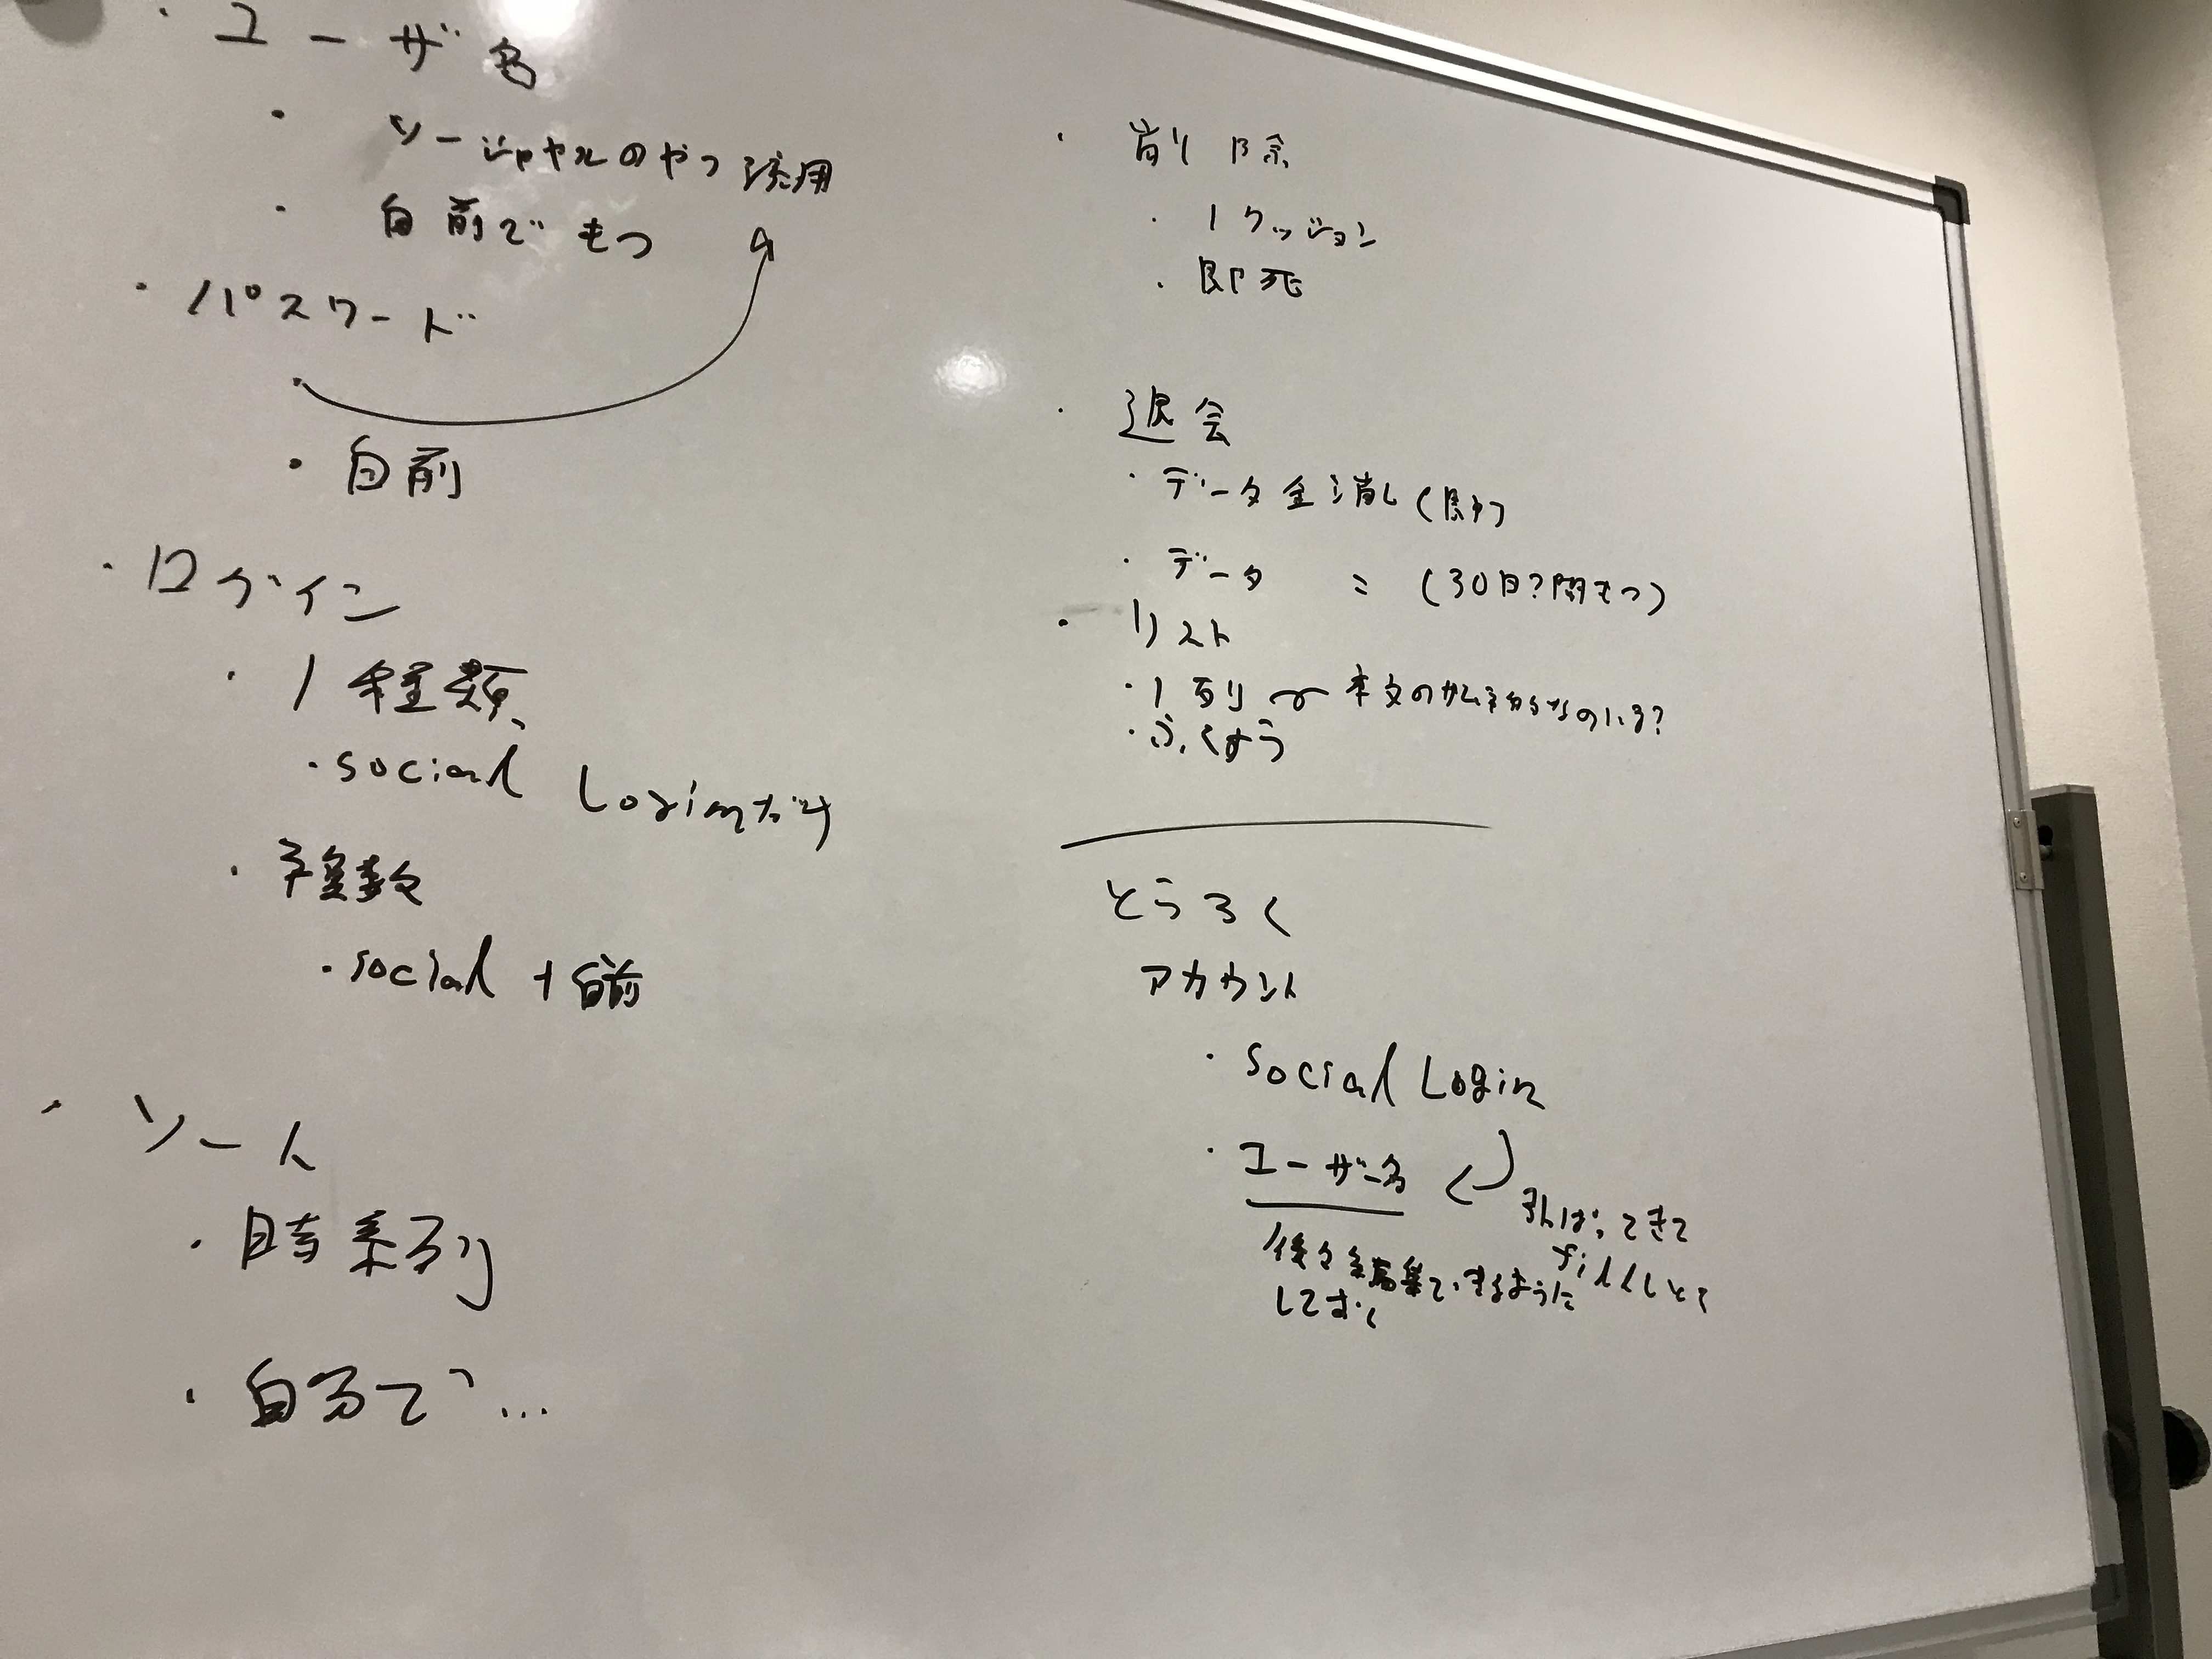 ・ユーザ名
・ソーシャルのやつ流用
・自前でもつ
・パスワード
・自前
・ログイン
・1種類
・social Loginだけ
・複数
・social + 自前
・ソート
・時系列
・自分で…
・削除
・1クッション
・即死
・退会
・データ全消し(即)
・データ 〃 (30日?間もつ)
・リスト
・1列 本文の
・ぶくまう
とうろく
アカウント
・social Login
・ユーザー名
引っぱってきて
fillしとく
後々編集できるように
しておく